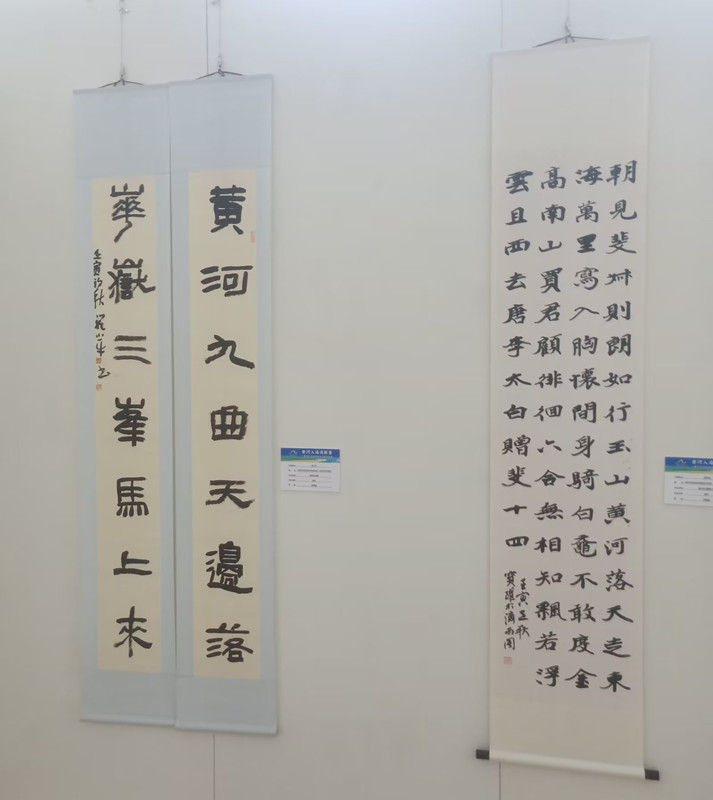 黄河九曲天邊落
華嶽三峯馬上來
壬寅初秋
朝見斐叔則朗如行玉山黄河落天走東
海萬里寫入胸懷間身騎白黿不敢度金
高南山買君顧徘徊六合無相知飄若浮
雲且西去唐李太白贈斐十四
壬寅立秋